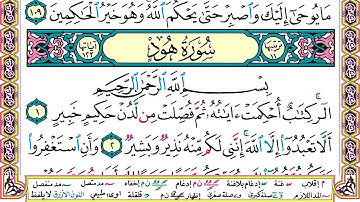 مَا يُوحَىٰٓ إِلَيْكَ وَٱصْبِرْ حَتَّىٰ يَحْكُمَ ٱللَّهُ وَهُوَ خَيْرُ ٱلْحَٰكِمِينَ ١٠٩
سُورَةُ هُودٍ
بِسْمِ ٱللَّهِ ٱلرَّحْمَٰنِ ٱلرَّحِيمِ
الٓر كِتَٰبٌ أُحْكِمَتْ ءَايَٰتُهُۥ ثُمَّ فُصِّلَتْ مِن لَّدُنْ حَكِيمٍ خَبِيرٍ ١
أَلَّا تَعْبُدُوٓا۟ إِلَّا ٱللَّهَ إِنَّنِى لَكُم مِّنْهُ نَذِيرٌ وَبَشِيرٌ ٢ وَأَنِ ٱسْتَغْفِرُوا۟